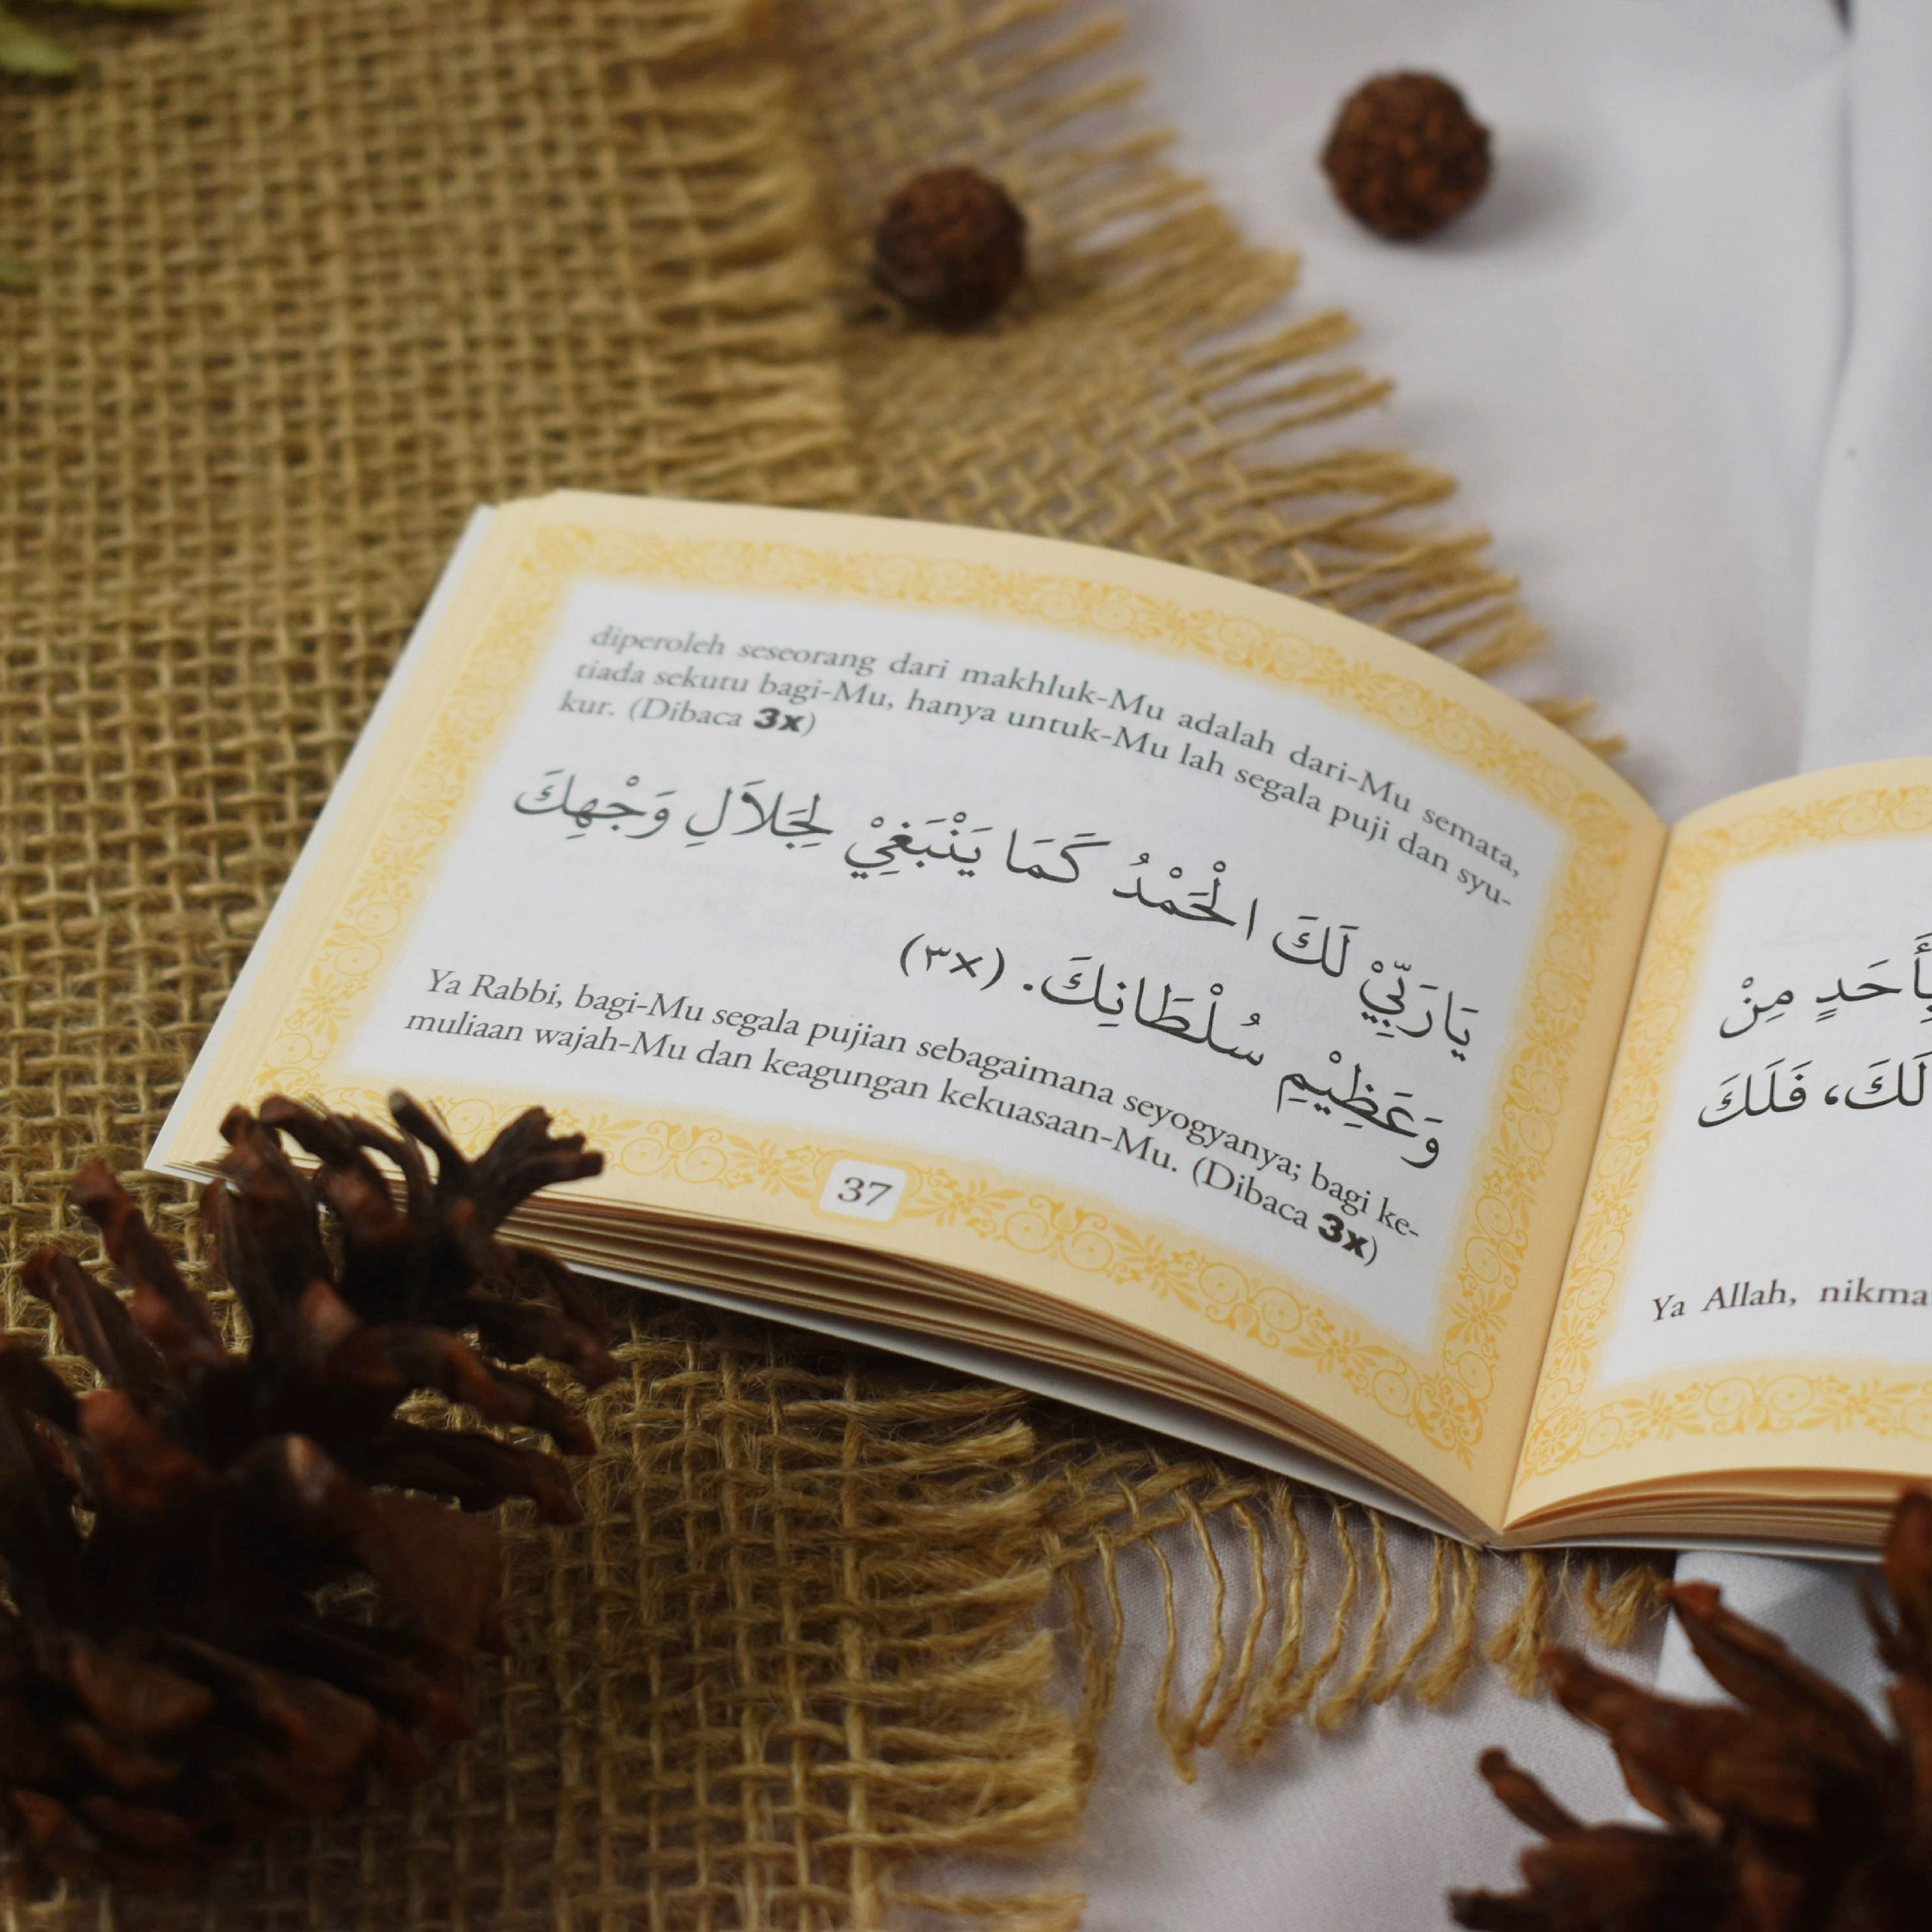 diperoleh seseorang dari makhluk-Mu adalah dari-Mu semata,
tiada sekutu bagi-Mu, hanya untuk-Mu lah segala puji dan syu-
kur. (Dibaca 3x)
يَارَبِّيْ لَكَ الْحَمْدُ كَمَا يَنْبَغِيْ لِجَلاَلِ وَجْهِكَ
وَعَظِيْمِ سُلْطَانِكَ. (٣x)
Ya Rabbi, bagi-Mu segala pujian sebagaimana seyogyanya; bagi ke-
muliaan wajah-Mu dan keagungan kekuasaan-Mu. (Dibaca 3x)
37
بِأَحَدٍ مِنْ
لَكَ، فَلَكَ
Ya Allah, nikma